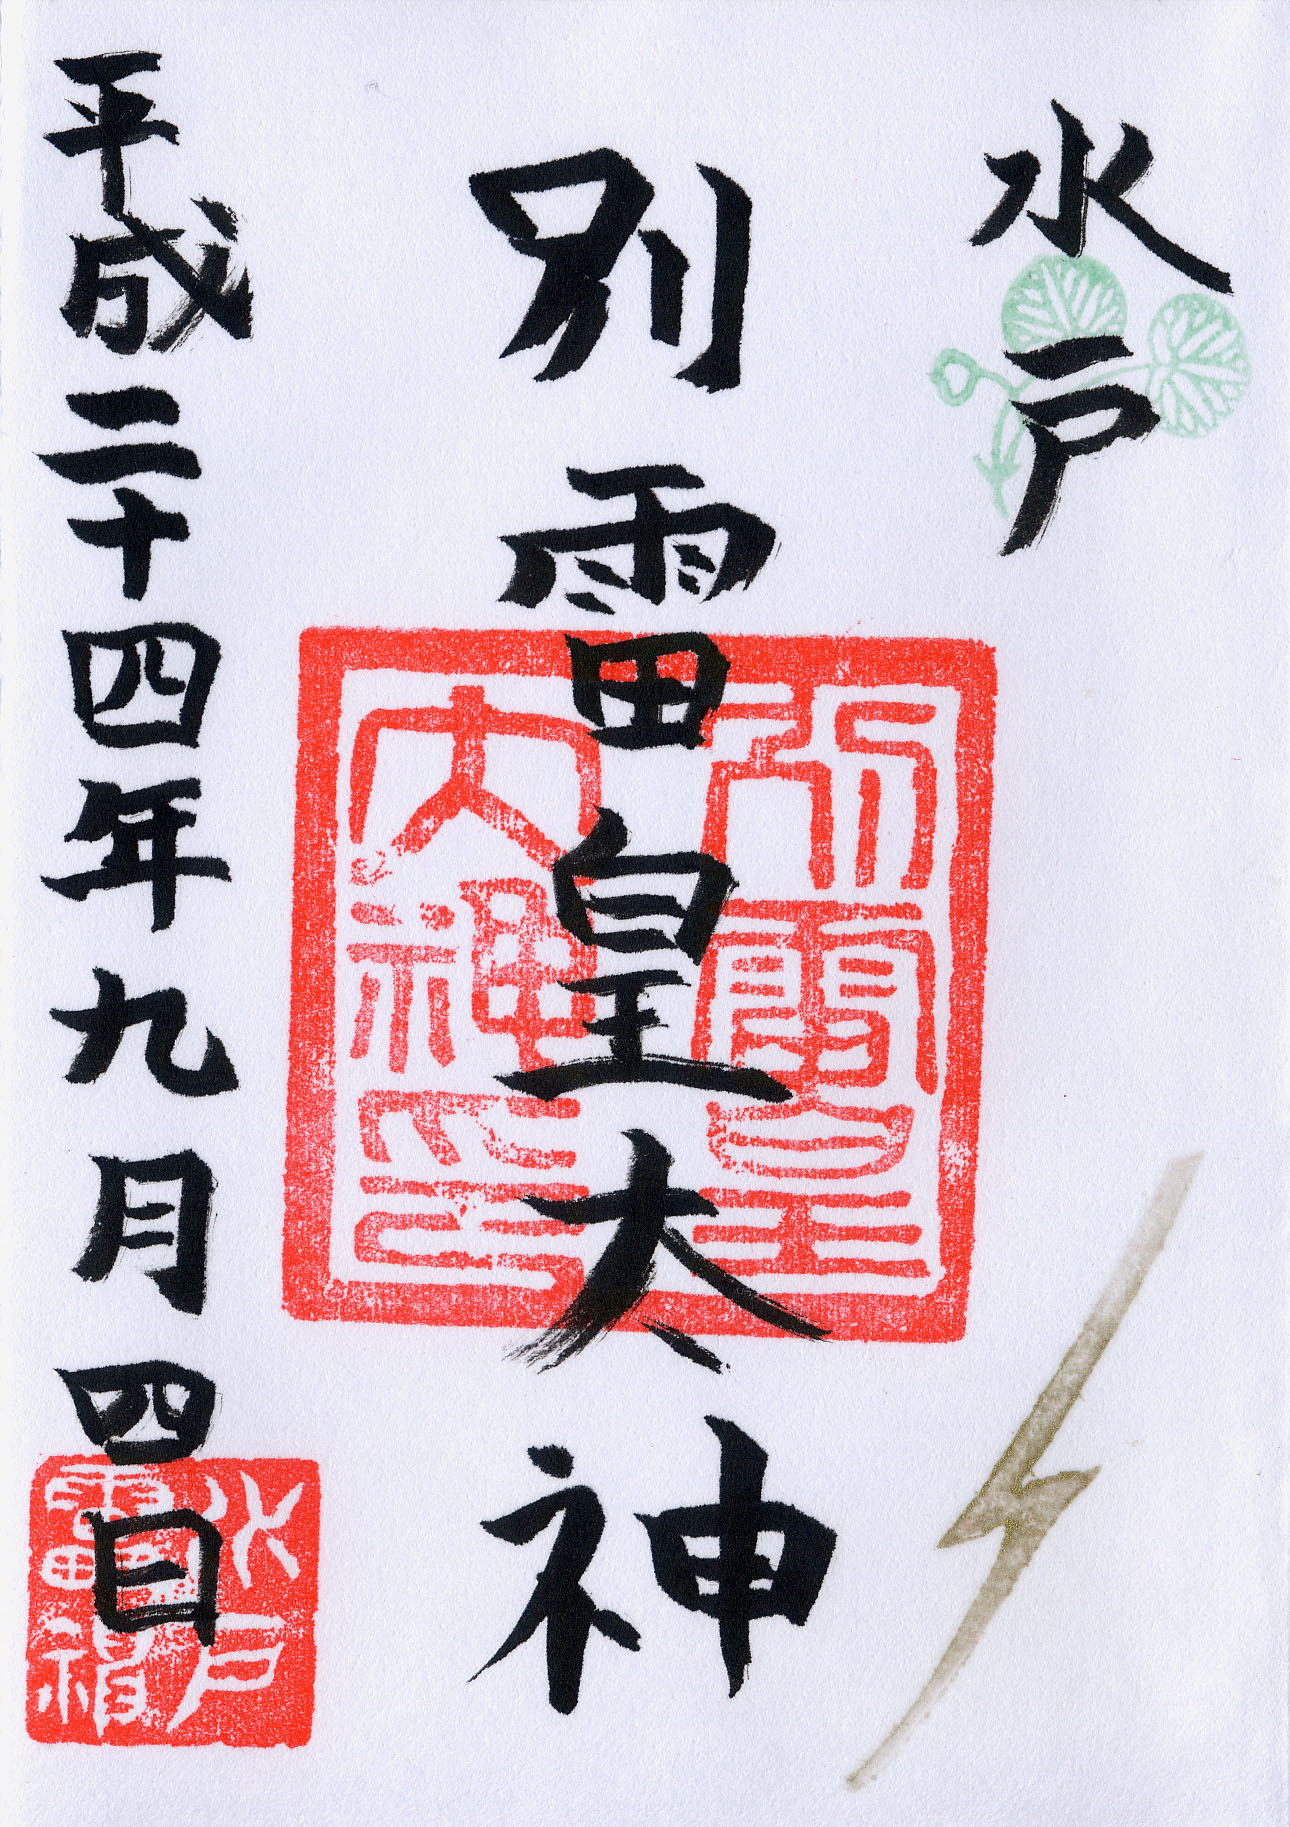 水戸
別雷皇太神
平成二十四年九月四日
別雷皇
大神印
水戸
雷神